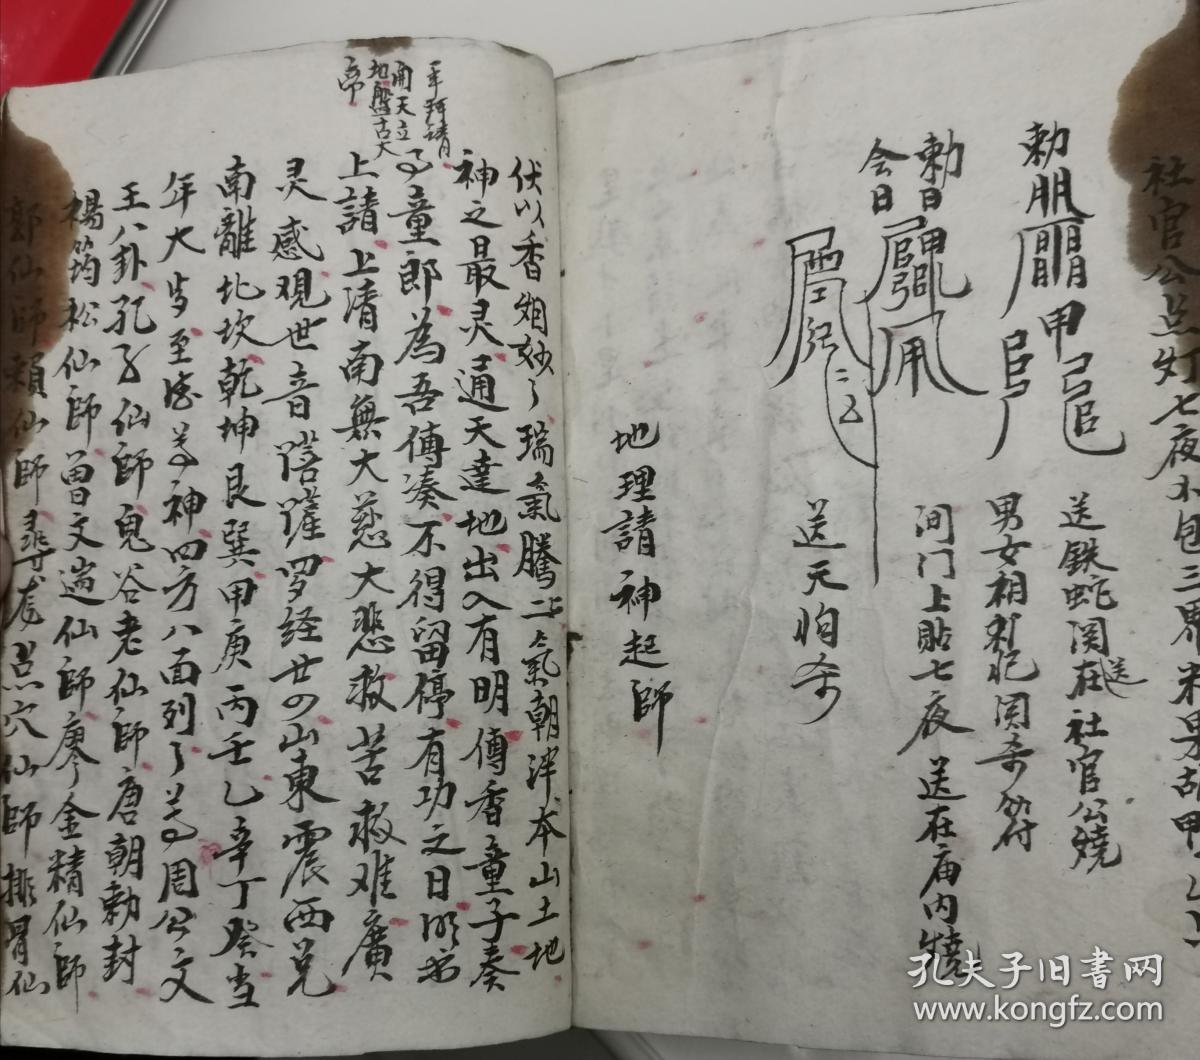 社官公点灯七夜小包三界
勅
甲
送铁蛇関在送社官公燒
男女相犯関斋符
勅日
会日
间门上貼七夜送在庙内燒
送天狗
地理請神起師
一年拜請
開天立
地盤古大
帝
伏以香烟妙々瑞氣騰二氣朝洋本山土地
神之日最灵通天達地出入有明傳香童子奏
事童郎為吾傅凑不得留停有功之日
上請上清南無大慈大悲救苦救难廣
灵感观世音菩薩罗经廿四山東震西兑
南離北坎乾坤艮巽甲庚丙壬乙辛丁癸当
年大岁至德尊神四方八面列了尊周公文
王八卦孔子仙師鬼谷老仙師唐朝勅封
楊筠松仙師曾文遄仙師廖金精仙師
郭仙師賴仙師尋龙点穴仙師排骨仙
孔夫子旧书网
www.kongfz.com